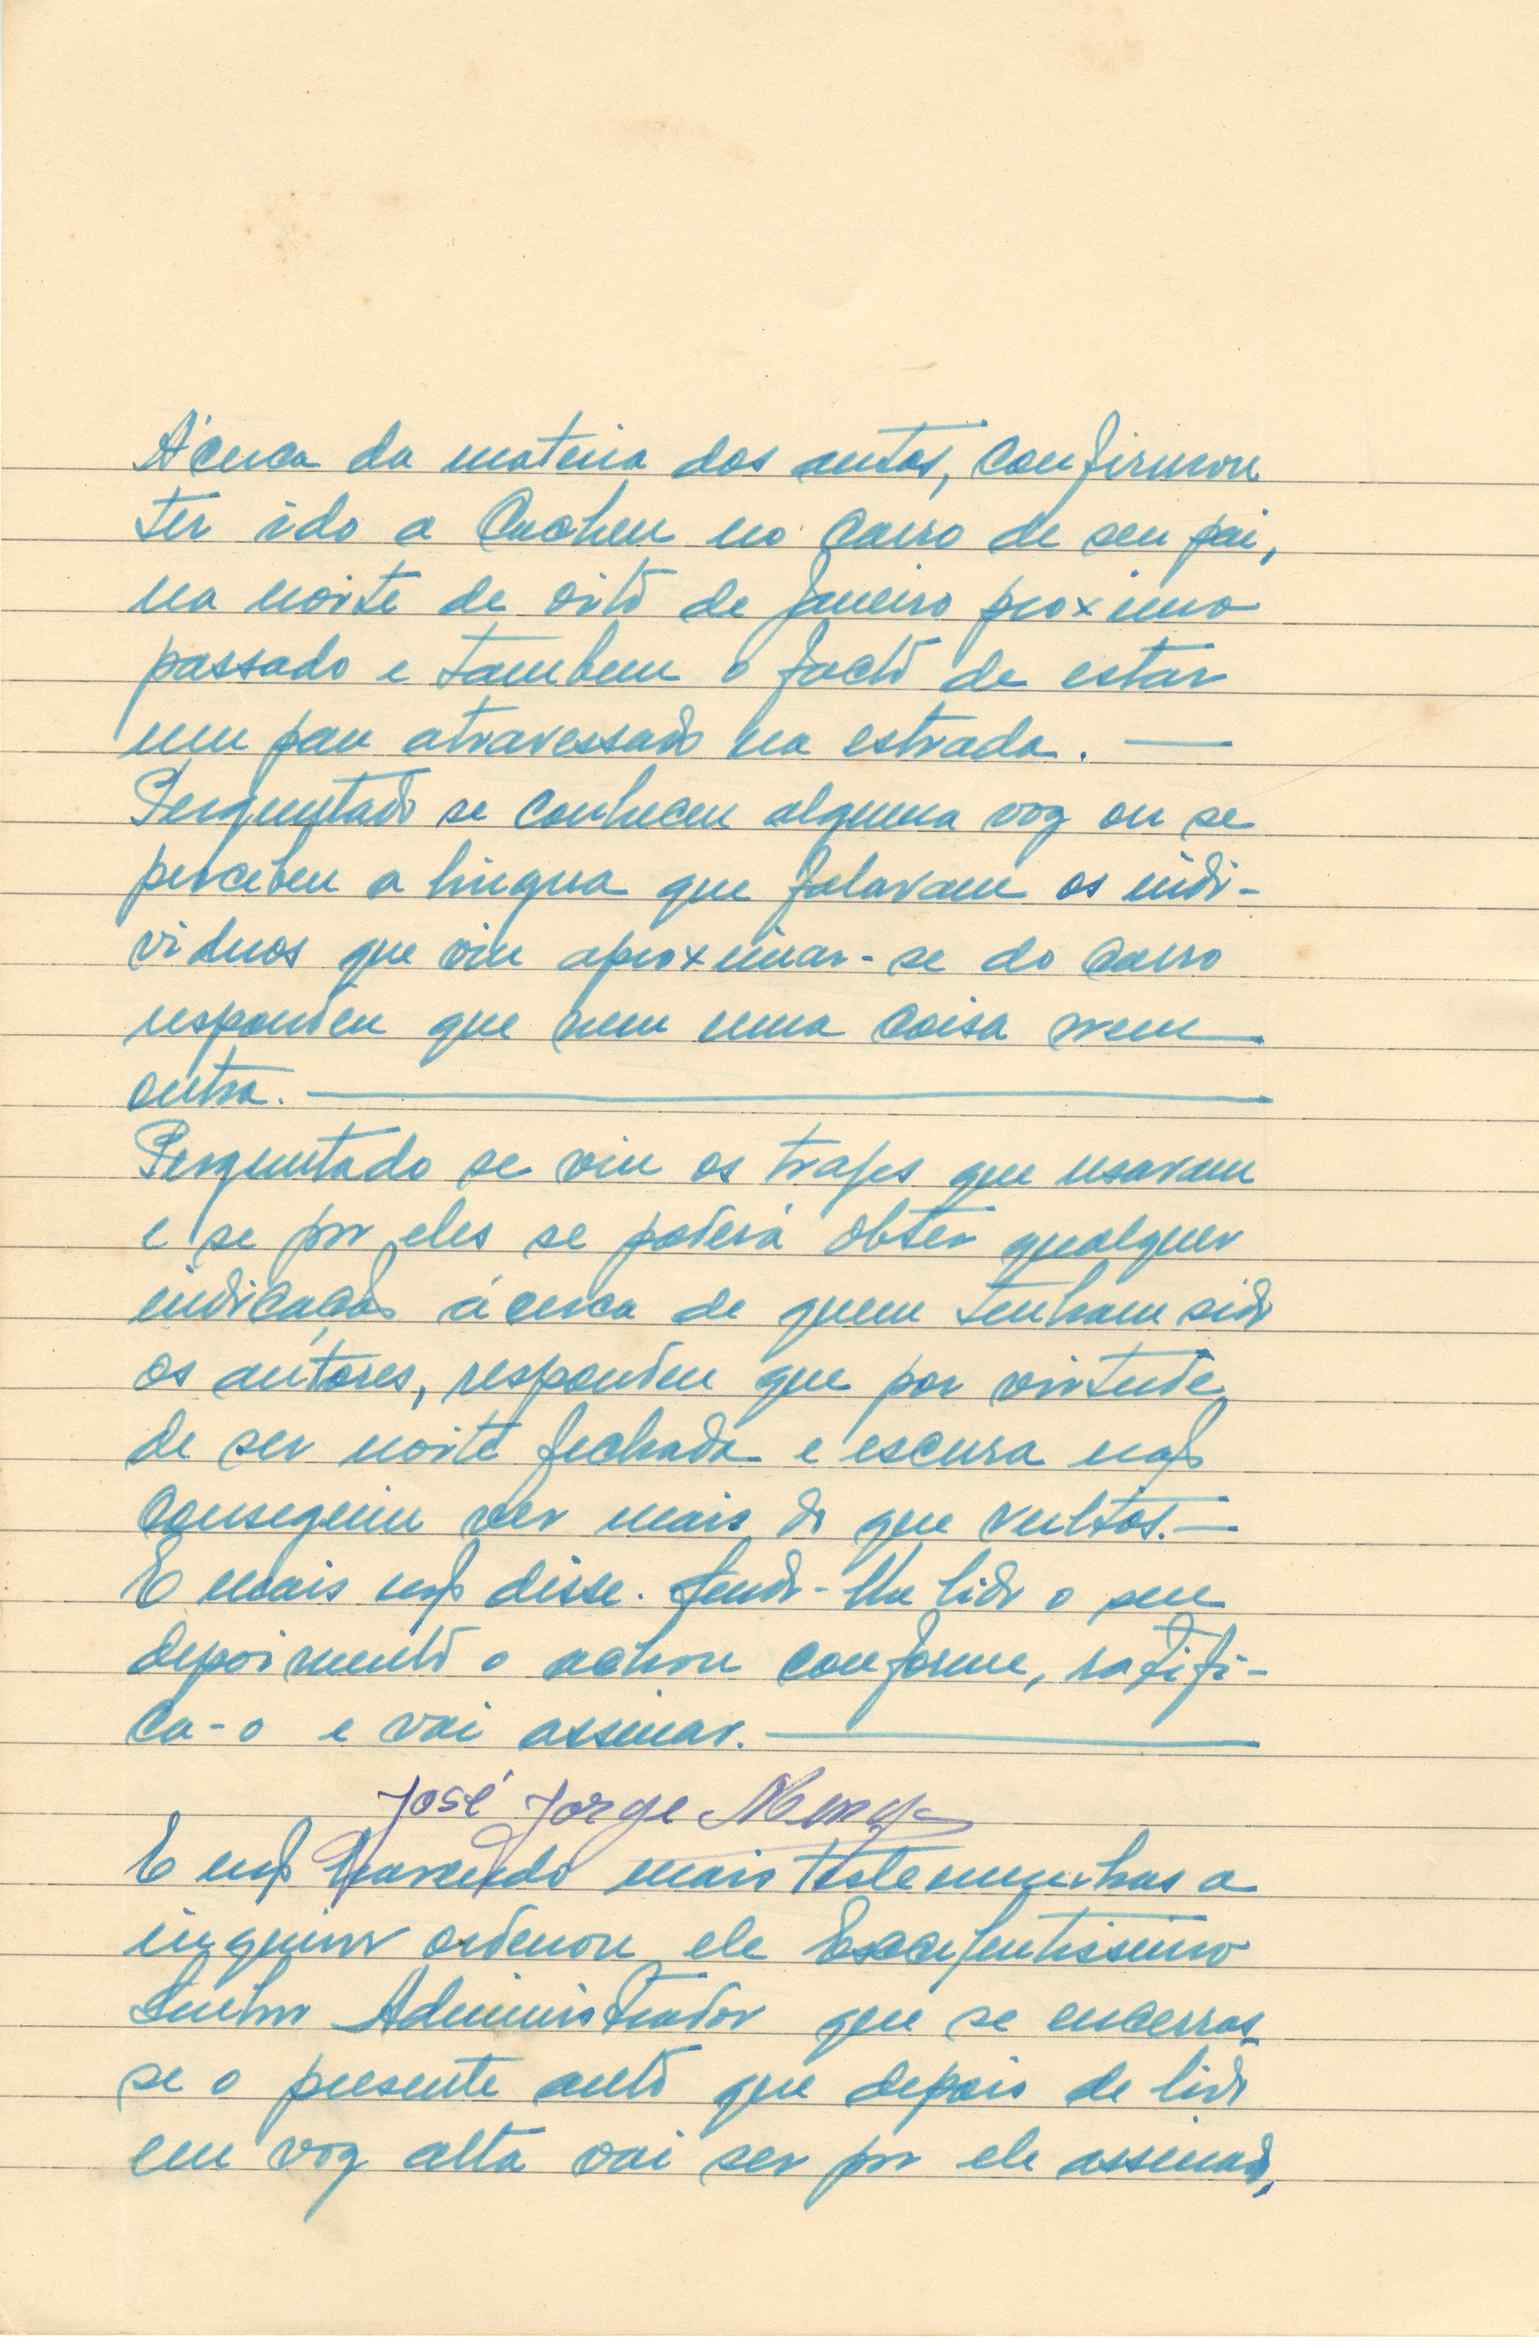 Ácerca da materia dos autos, confirmou
ter ido a Cacheu no carro de seu pai,
na noite de oito de Janeiro proximo
passado e tambem o facto de estar
um pau atravessado na estrada. —
Perguntado se conheceu alguma voz ou se
percebeu a lingua que falavam os indi-
viduos que viu aproximar-se do carro
respondeu que nem uma coisa nem
outra. —
Perguntado se viu os trajes que usavam
e se por eles se poderá obter qualquer
indicação ácerca de quem tenham sido
os autores, respondeu que por virtude
de ser noite fechada e escura não
conseguiu ver mais do que vultos. —
E mais não disse. Sendo-lhe lido o seu
depoimento o achou conforme, ratifi-
ca-o e vai assinar. —
José Jorge
E não havendo mais testemunhas a
inquirir ordenou ele Excelentissimo
Senhor Administrador que se encerras-
se o presente auto que depois de lido
em voz alta vai ser por ele assinado,